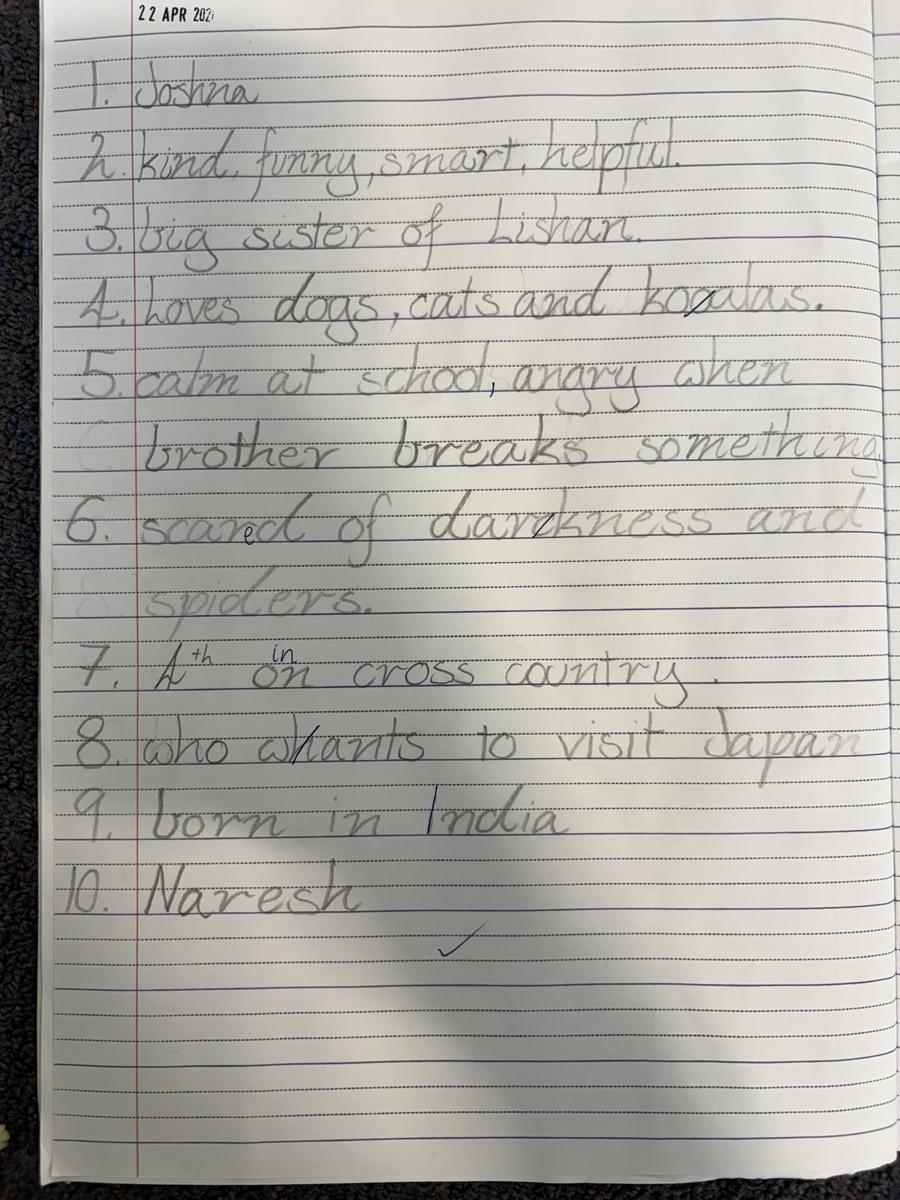 22 APR 202
1. Joshna
2. kind, funny, smart, helpful.
3. big sister of Lishan.
4. Loves dogs, cats and koalas.
5. calm at school, angry when
brother breaks something
6. scared of darkness and
spiders.
7. 4th in cross country.
8. who wants to visit Japan
9. born in India
10. Naresh